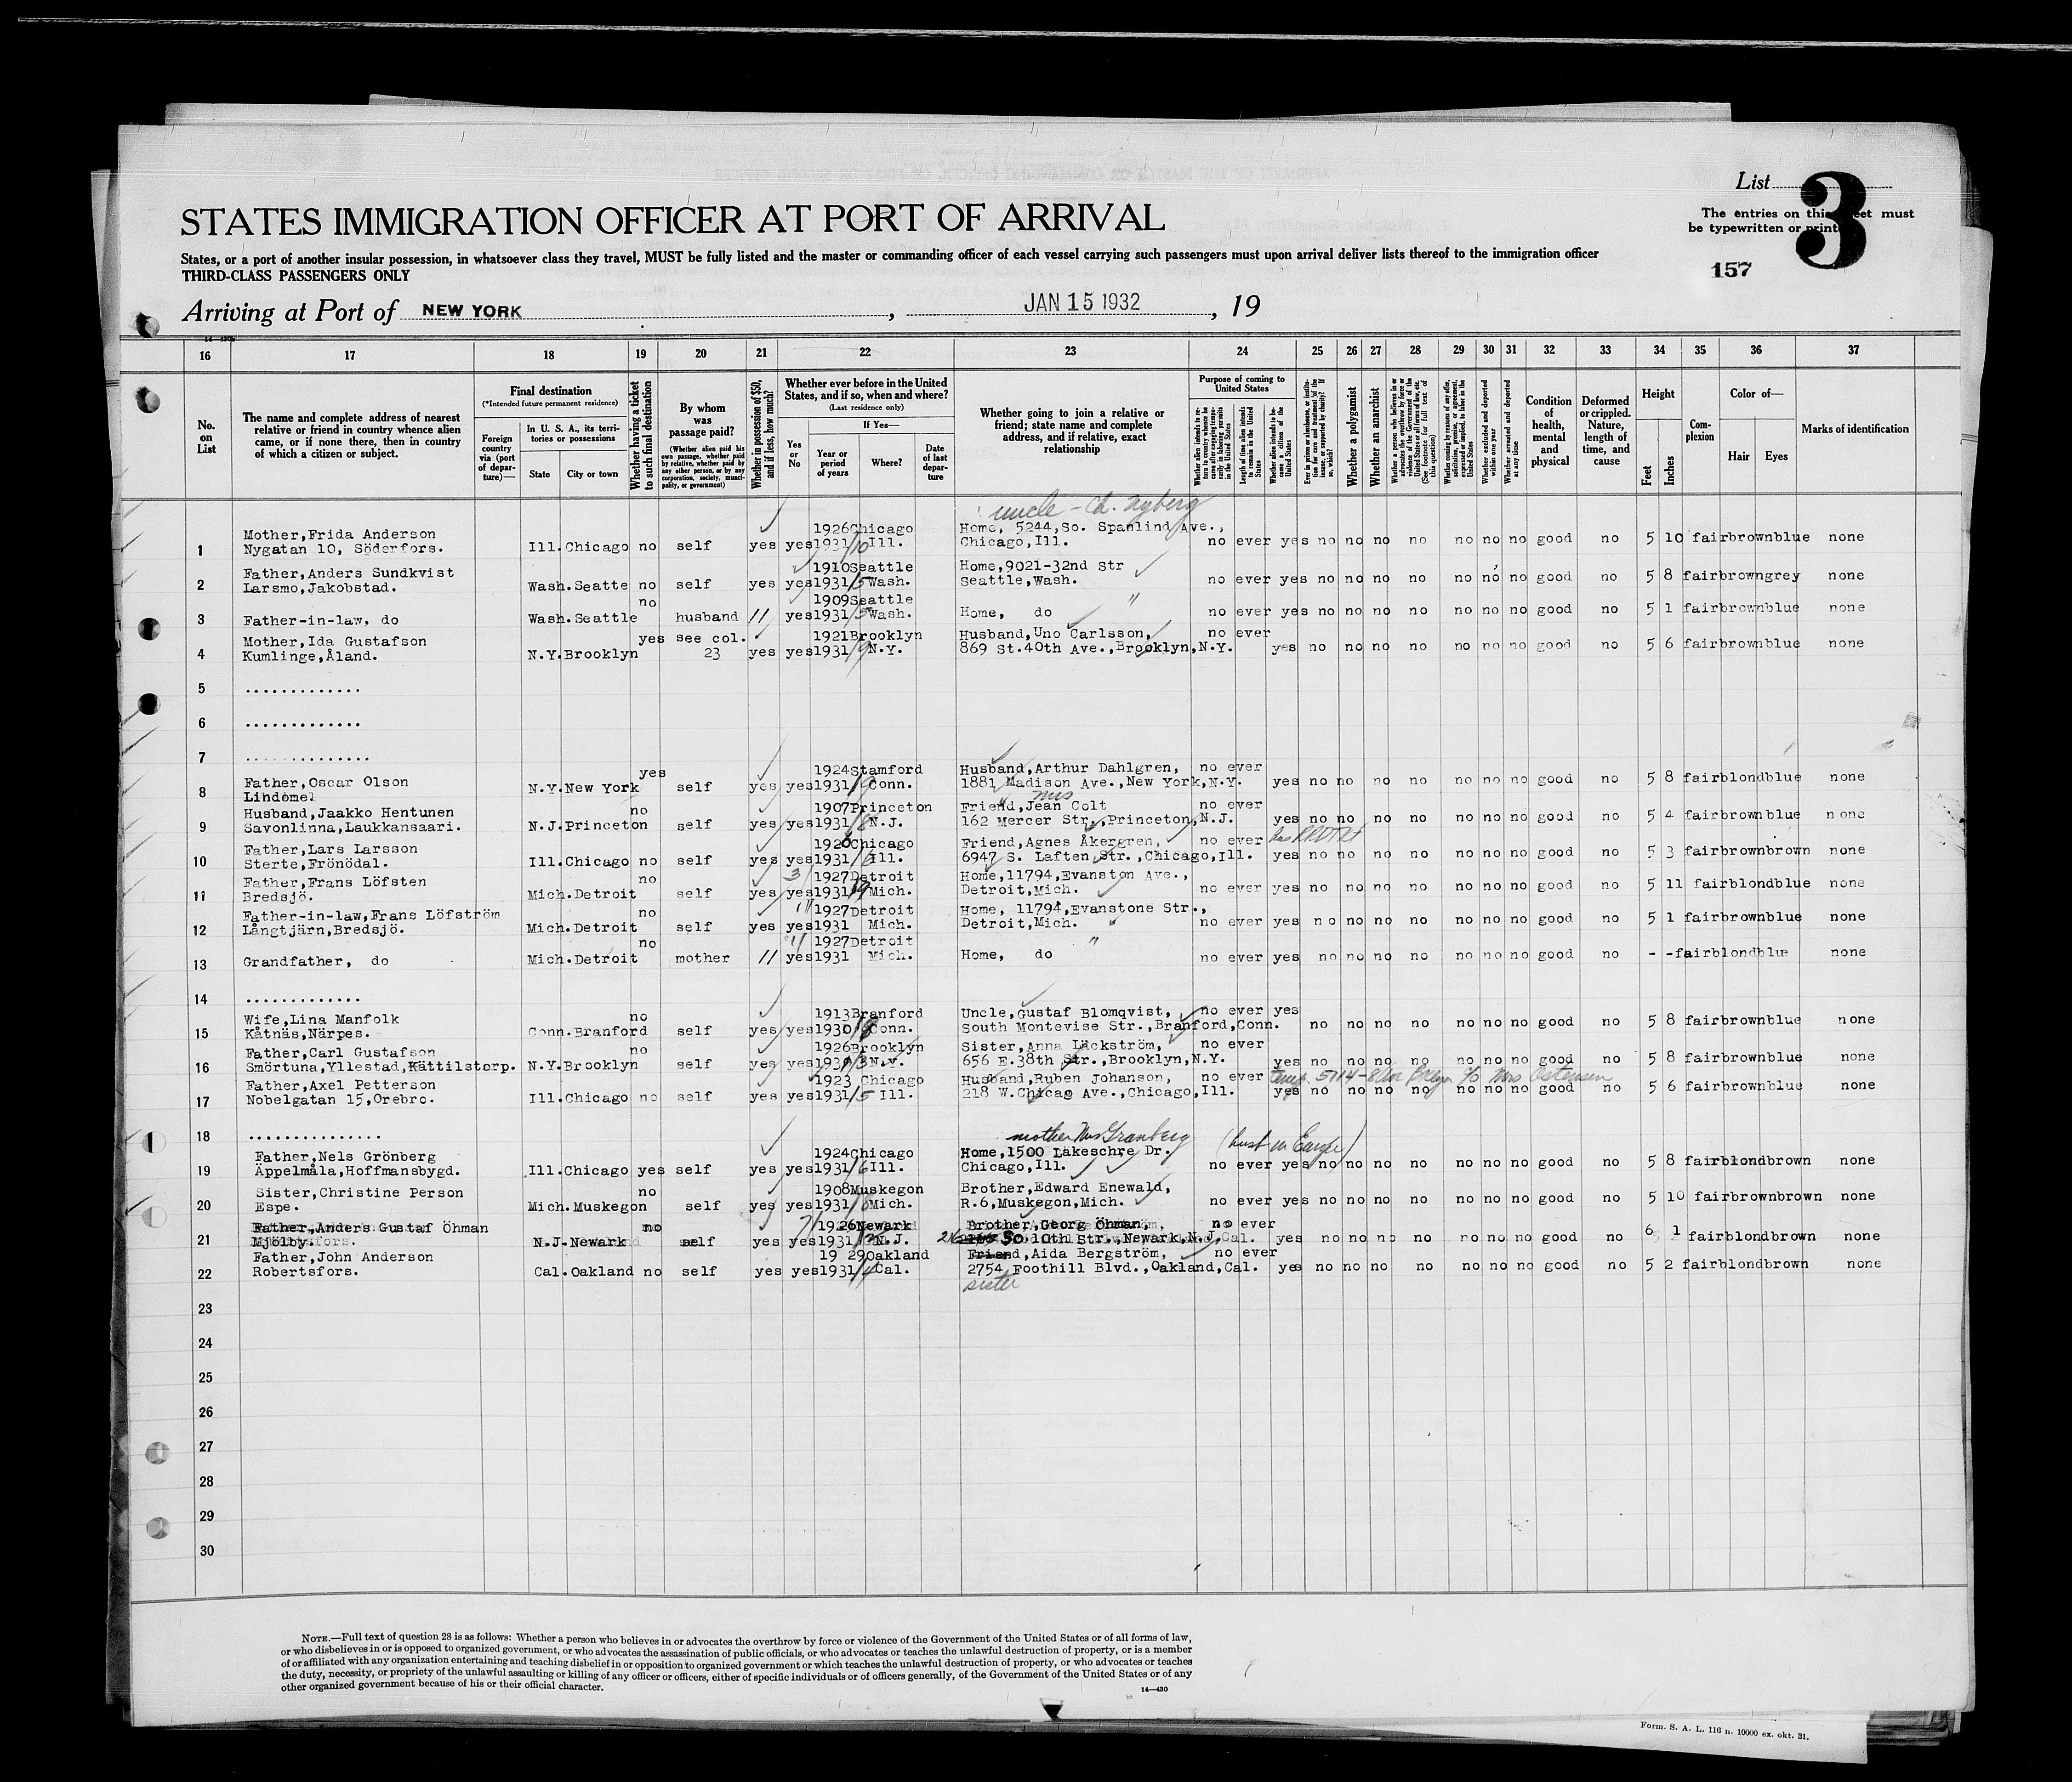 List 3
STATES IMMIGRATION OFFICER AT PORT OF ARRIVAL
The entries on this sheet must
be typewritten or printed
157
States, or a port of another insular possession, in whatsoever class they travel, MUST be fully listed and the master or commanding officer of each vessel carrying such passengers must upon arrival deliver lists thereof to the immigration officer
THIRD-CLASS PASSENGERS ONLY
Arriving at Port of NEW YORK , JAN 15 1932 , 19
16 17 18 19 20 21 22 23 24 25 26 27 28 29 30 31 32 33 34 35 36 37
No. on List
The name and complete address of nearest relative or friend in country whence alien came, or if none there, then in country of which a citizen or subject.
Final destination
(*Intended future permanent residence)
Foreign country via (port of departure)—
In U. S. A., its territories or possessions
State City or town
Whether having a ticket to such final destination
By whom was passage paid?
(Whether alien paid his own passage, whether paid by relative, whether paid by any other person, or by any corporation, society, municipality, or government)
Whether in possession of $50, and if less, how much?
Whether ever before in the United States, and if so, when and where?
(Last residence only)
Yes or No
If Yes—
Year or period of years
Where?
Date of last departure
Whether going to join a relative or friend; state name and complete address, and if relative, exact relationship
Purpose of coming to United States
Length of time alien intends to remain in the United States
Whether alien intends to become a citizen of the United States
Whether a polygamist
Whether an anarchist
Whether excluded and deported within one year
Whether arrested and deported at any time
Condition of health, mental and physical
Deformed or crippled. Nature, length of time, and cause
Height
Feet Inches
Complexion
Color of—
Hair Eyes
Marks of identification
uncle - Ch. Nyberg
Mother,Frida Anderson 1926Chicago Home, 5244,So. Spanlind Ave.,
1 Nygatan 10, Söderfors. Ill.Chicago no self yes yes1931/10 Ill. Chicago,Ill. no ever yes no no no no no no no good no 5 10 fairbrownblue none
Father,Anders Sundkvist 1910Seattle Home,9021-32nd Str
2 Larsmo,Jakobstad. Wash.Seatte no self yes yes1931/5Wash. Seattle,Wash. no ever yes no no no no no no no good no 5 8 fairbrowngrey none
no 1909Seattle "
3 Father-in-law, do Wash.Seattle husband // yes1931/5Wash. Home, do no ever yes no no no no no no no good no 5 1 fairbrownblue none
Mother,Ida Gustafson yes see col. 1921Brooklyn Husband,Uno Carlsson, no ever
4 Kumlinge,Åland. N.Y.Brooklyn 23 yes yes1931/9N.Y. 869 St.40th Ave.,Brooklyn,N.Y. yes no no no no no no no good no 5 6 fairbrownblue none
5 .............
6 .............
7 ..............
yes 1924Stamford Husband,Arthur Dahlgren, no ever
8 Father,Oscar Olson N.Y.New York self yes yes1931/9Conn. 1881 Madison Ave.,New York,N.Y. yes no no no no no no no good no 5 8 fairblondblue none
Lindömel
mrs
Husband,Jaakko Hentunen no 1907Princeton Friend,Jean Colt no ever
9 Savonlinna,Laukkansaari. N.J.Princeton self yes yes1931/8N.J. 162 Mercer Str.,Princeton,N.J. yes no no no no no no no good no 5 4 fairbrownblue none
Father,Lars Larsson 1926Chicago Friend,Agnes Åkergren, no ever
10 Sterte,Frönödal. Ill.Chicago no self yes yes1931/6Ill. 6947 S. Laften Str.,Chicago,Ill. yes no no no no no no no good no 5 3 fairbrownbrown none
Father,Frans Löfsten no 3/ 1927Detroit Home,11794,Evanston Ave.,
11 Bredsjö. Mich.Detroit self yes yes1931/9 Mich. Detroit,Mich. no ever yes no no no no no no no good no 5 11 fairblondblue none
Father-in-law,Frans Löfström no "1927Detroit Home, 11794,Evanstone Str.,
12 Långtjärn,Bredsjö. Mich.Detroit self yes yes1931 Mich. Detroit,Mich. " no ever yes no no no no no no no good no 5 1 fairbrownblue none
no " 1927Detroit "
13 Grandfather, do Mich.Detroit mother // yes1931 Mich. Home, do no ever yes no no no no no no no good no - -fairblondblue none
14 .............
Wife,Lina Manfolk no 1913Branford Uncle,Gustaf Blomqvist, no ever yes
15 Kåtnäs,Närpes. Conn.Branford self yes yes1930/8Conn. South Montevise Str.,Branford,Conn. no no no no no no no good no 5 8 fairbrownblue none
Father,Carl Gustafson no 1926Brooklyn Sister,Anna Läckström, no ever
16 Smörtuna,Yllestad,Kättilstorp. N.Y.Brooklyn self yes yes1931/3N.Y. 656 E.38th Str.,Brooklyn,N.Y. yes no no no no no no no good no 5 8 fairbrownblue none
Father,Axel Petterson 1923 Chicago Husband,Ruben Johanson, no ever temp. 5114-8 Ave Bklyn c/o Mrs Ostensen
17 Nobelgatan 15,Orebro. Ill.Chicago no self yes yes1931/5 Ill. 218 W.Chicag Ave.,Chicago,Ill. yes no no no no no no no good no 5 6 fairbrownblue none
18 ...............
mother Mrs Granberg (husb in Europe)
Father,Nels Grönberg 1924Chicago Home,1500 Lakeschre Dr.
19 Äppelmåla,Hoffmansbygd. Ill.Chicago yes self yes yes1931/6Ill. Chicago,Ill. no ever yes no no no no no no no good no 5 8 fairblondbrown none
Sister,Christine Person no 1908Muskegon Brother,Edward Enewald,
20 Espe. Mich.Muskegon self yes yes1931/8Mich. R.6,Muskegon,Mich. no ever yes no no no no no no no good no 5 10 fairbrownbrown none
Father,Anders Gustaf Öhman no 7/ 1926Newark Brother,Georg Öhman, no ever
21 Mjölby. N.J.Newark self yes yes1931/ N.J. 216 So 10th Str.,Newark,N.J. yes no no no no no no no good no 6 1 fairblondbrown none
Father,John Anderson 19 29Oakland Friend,Aida Bergström, no ever
22 Robertsfors. Cal.Oakland no self yes yes1931/4Cal. 2754 Foothill Blvd.,Oakland,Cal. yes no no no no no no no good no 5 2 fairblondbrown none
sister
23
24
25
26
27
28
29
30
NOTE.—Full text of question 28 is as follows: Whether a person who believes in or advocates the overthrow by force or violence of the Government of the United States or of all forms of law,
or who disbelieves in or is opposed to organized government, or who advocates the assassination of public officials, or who advocates or teaches the unlawful destruction of property, or is a member
of or affiliated with any organization entertaining and teaching disbelief in or opposition to organized government or which teaches the unlawful destruction of property, or who advocates or teaches
the duty, necessity, or propriety of the unlawful assaulting or killing of any officer or officers, either of specific individuals or of officers generally, of the Government of the United States or of any
other organized government because of his or their official character.
14—430
Form. S. A. L. 116 n. 10000 ex. okt. 31.